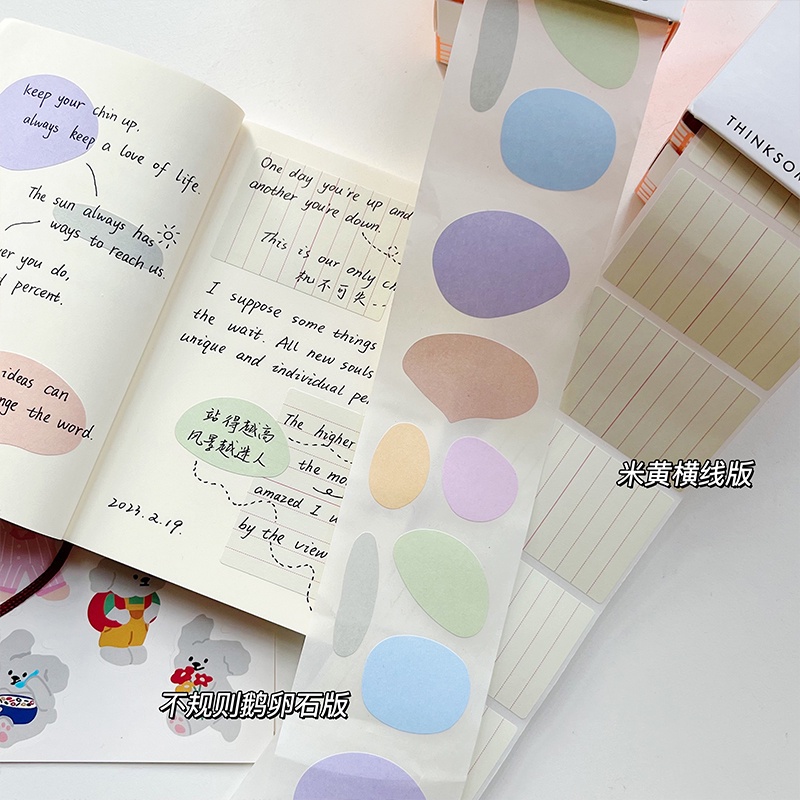 keep your chin up.
always keep a love of life.
The sun always has
ways to reach us.
er you do,
percent.
ideas can
nge the word.
One day you're up and
another you're down.
This is our only ch
机不可失...
I suppose some things
the wait. All new souls
unique and individual pe
站得越高
风景越迷人
The higher
the mo
amazed I w
by the view
2023.2.19.
THINKSOM
米黄横线版
不规则鹅卵石版